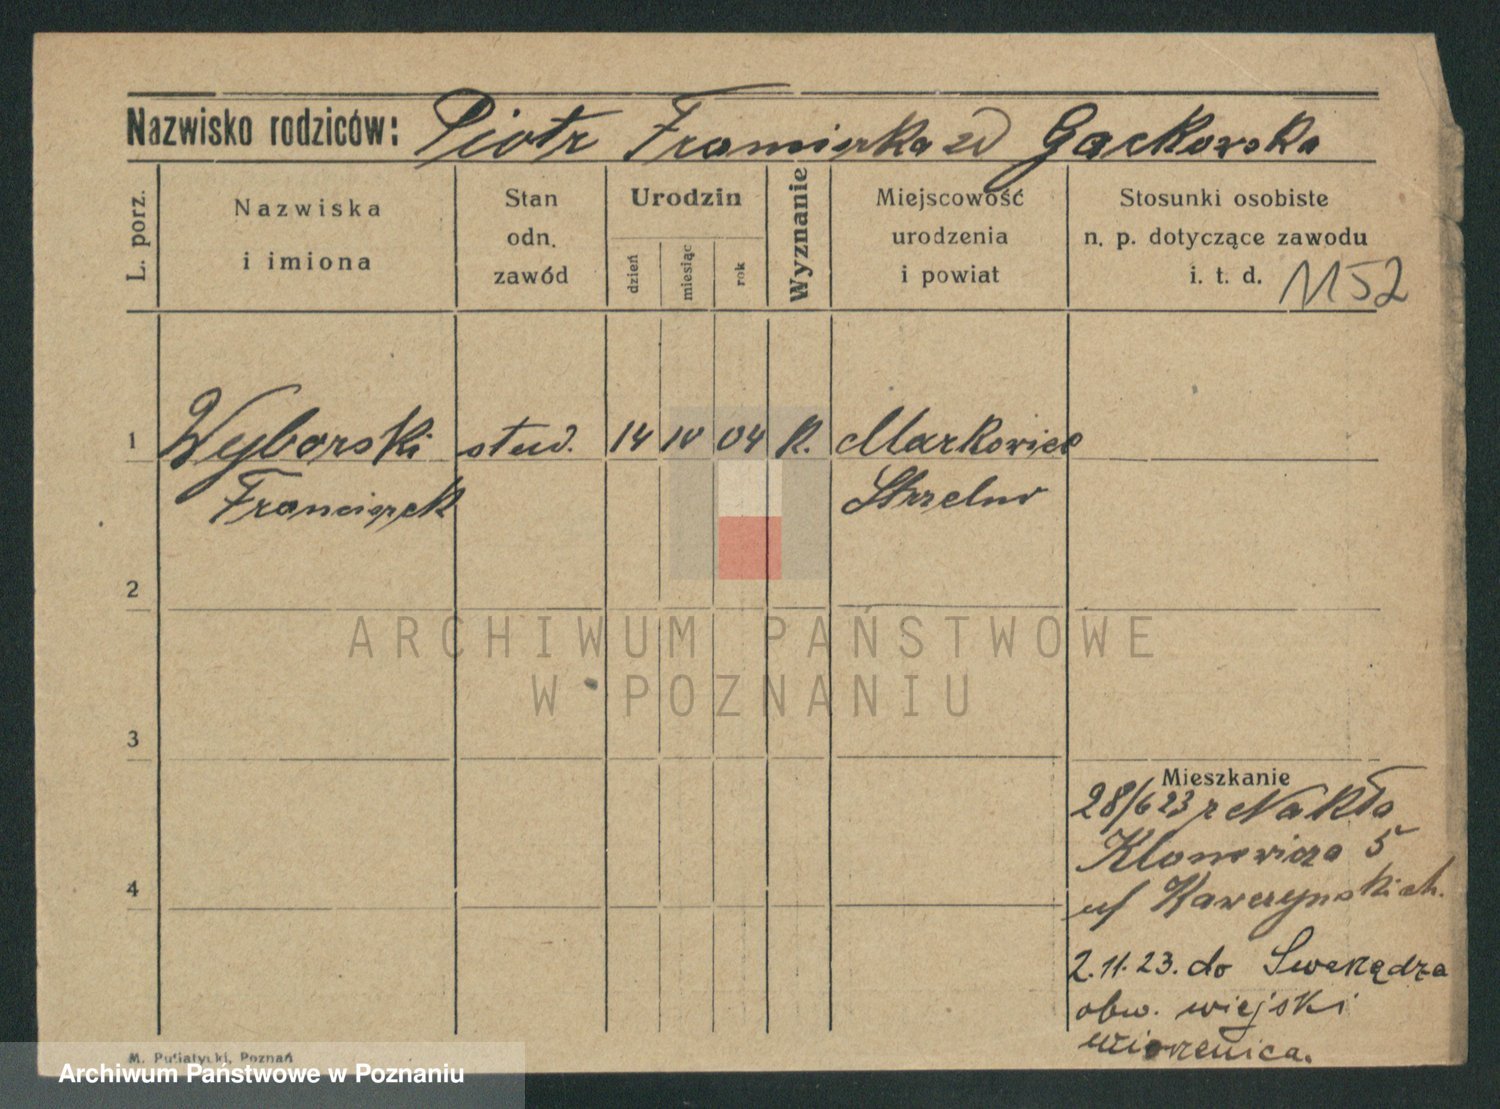 Nazwisko rodziców: Piotr Franciszka zd Gackowska
L. porz.
Nazwiska
i imiona
Stan
odn.
zawód
Urodzin
dzień
miesiąc
rok
Wyznanie
Miejscowość
urodzenia
i powiat
Stosunki osobiste
n. p. dotyczące zawodu
i. t. d. 1152
1 Wyborski stud. 14 IV 04 k. Markowice
Franciszek Strzelno
2
ARCHIWUM PAŃSTWOWE
W POZNANIU
3
Mieszkanie
28/6 23 z Nakła
Klonowicza 5
4
u/ Kawczyńskich.
2.11.23. do Swarzędza
obw. wiejski
Wierzenica.
M. Putiatycki, Poznań
Archiwum Państwowe w Poznaniu